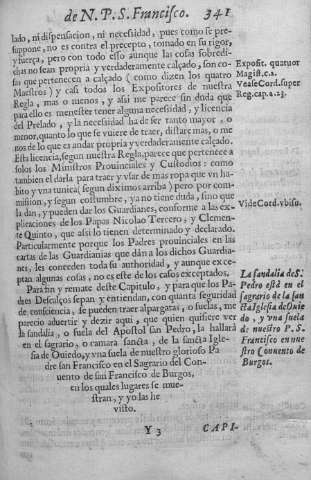 de N. P. S. Francisco. 341
lado, ni dispensacion, ni necessidad, pues como se pre-
supone, no es contra el precepto, tomado en su rigor,
y fuerça, pero con todo esso aunque las cosas sobredi-
chas no sean propria y verdaderamente calçado, son co-
sas que pertenecen a calçado (como dizen los quatro
Maestros) y casi todos los Expositores de nuestra
Regla, mas o menos, y assi me parece sin duda que
para ello es menester tener alguna necessidad, y licencia
del Prelado, y la necessidad ha de ser tanto mayor, o
menor, quanto lo que se vuiere de traer, distare mas, o me
nos de lo que es andar propria y verdaderamente calçado.
Esta licencia, segun nuestra Regla, parece que pertenece a
solos los Ministros Prouinciales y Custodios: como
tambien el darla para traer y vsar de mas ropa que vn ha-
bito y vna tunica (segun diximos arriba) pero por com-
mission, y segun costumbre, ya no tiene duda, sino que
la dan, y pueden dar los Guardianes, conforme a las ex-
posiciones de los Papas Nicolao Tercero, y Clemen-
te Quinto, que assi lo tienen determinado y declarado.
Particularmente porque los Padres prouinciales en las
cartas de las Guardianias que dan a los dichos Guardia-
nes, les conceden toda su authoridad, y aunque excep-
tan algunas cosas, no es este de los casos exceptados.
Para fin y remate deste Capitulo, y para que los Pa-
dres Descalços sepan y entiendan, con quanta seguridad
de consciencia, se pueden traer alpargatas, o suelas, me
parecio aduertir y dezir aqui, que quien quisiere ver
la sandalia, o suela del Apostol san Pedro, la hallarà
en el sagrario, o camara sancta, de la sancta Igle-
sia de Ouiedo, y vna suela de nuestro glorioso Pa
dre san Francisco en el Sagrario del Con-
uento de san Francisco de Burgos,
en los quales lugares se mue-
stran, y yo las he
visto.
Exposit. quatuor
Magist. c. 2.
Vease Cord. super
Reg. cap. 2. q. 23.
Vide Cord. vbi su.
La sandalia de S.
Pedro està en el
sagrario de la san
cta Iglesia de Ouie
do, y vna suela
de nuestro P. S.
Francisco en nue
stro Conuento de
Burgos.
Y 3 CAPI-